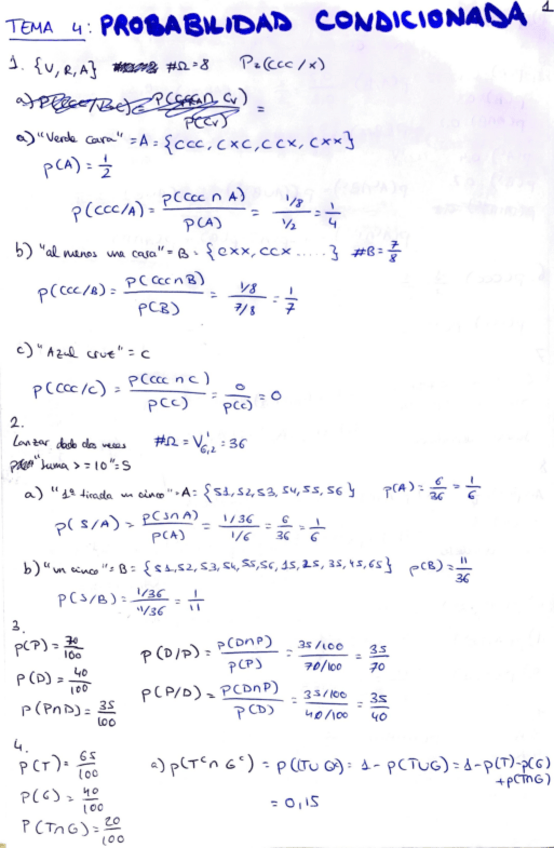 1
TEMA 4: PROBABILIDAD CONDICIONADA
1. {V, R, A} #Ω=8 P₂(CCC/X)
a) P(CCC∩Cv) =
P(Cv)
a) "Verde cara" = A = {CCC, CXC, CCX, CXX}
P(A) = 1/2
P(CCC/A) = P(CCC ∩ A)/P(A) = (1/8)/(1/2) = 1/4
b) "al menos una cara" = B = {CXX, CCX .....} #B = 7/8
P(CCC/B) = P(CCC∩B)/P(B) = (1/8)/(7/8) = 1/7
c) "Azul cruz" = C
P(CCC/C) = P(CCC ∩ C)/P(C) = 0/P(C) = 0
2.
Lanzar dado dos veces #Ω = V'6,2 = 36
"suma >= 10" = S
a) "1ª tirada un cinco" = A = {51, 52, 53, 54, 55, 56} P(A) = 6/36 = 1/6
P(S/A) = P(S∩A)/P(A) = (1/36)/(1/6) = 6/36 = 1/6
b) "un cinco" = B = {51, 52, 53, 54, 55, 56, 15, 25, 35, 45, 65} P(B) = 11/36
P(S/B) = (1/36)/(11/36) = 1/11
3.
P(P) = 70/100 P(D/P) = P(D∩P)/P(P) = (35/100)/(70/100) = 35/70
P(D) = 40/100
P(P∩D) = 35/100 P(P/D) = P(D∩P)/P(D) = (35/100)/(40/100) = 35/40
4.
P(T) = 65/100 a) P(Tᶜ∩Gᶜ) = P((T∪G)ᶜ) = 1 - P(T∪G) = 1 - P(T) - P(G) + P(T∩G)
P(G) = 40/100 = 0,15
P(T∩G) = 20/100